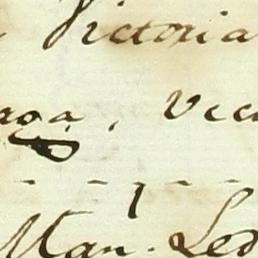 Victoria
aga, Vec
- - 1 - -
Man. Led